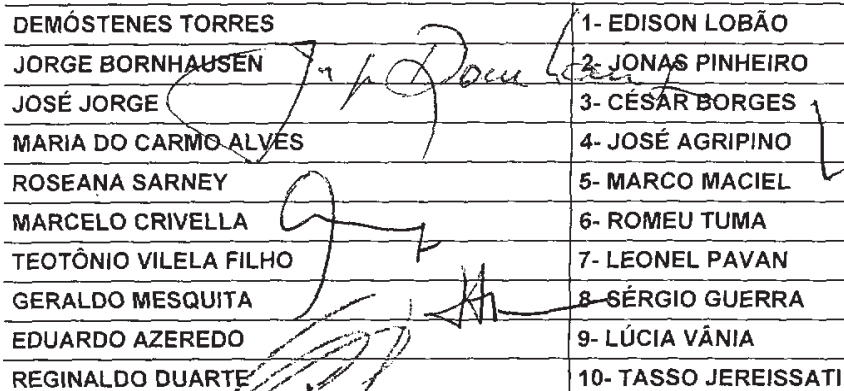 DEMÓSTENES TORRES 1- EDISON LOBÃO
JORGE BORNHAUSEN 2- JONAS PINHEIRO
JOSÉ JORGE 3- CÉSAR BORGES
MARIA DO CARMO ALVES 4- JOSÉ AGRIPINO
ROSEANA SARNEY 5- MARCO MACIEL
MARCELO CRIVELLA 6- ROMEU TUMA
TEOTÔNIO VILELA FILHO 7- LEONEL PAVAN
GERALDO MESQUITA 8- SÉRGIO GUERRA
EDUARDO AZEREDO 9- LÚCIA VÂNIA
REGINALDO DUARTE 10- TASSO JEREISSATI